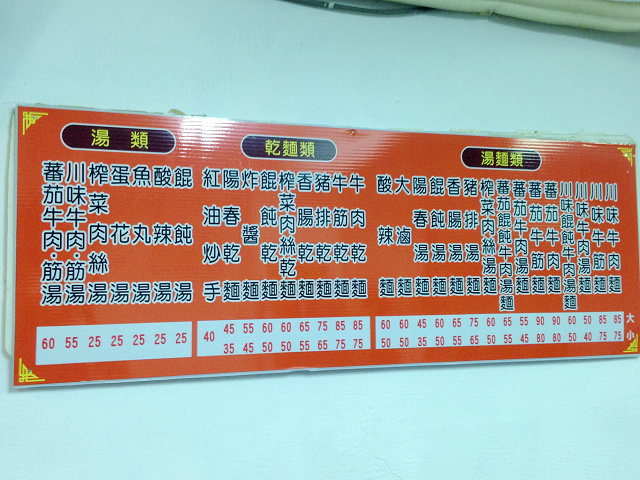 湯 類
蕃茄牛肉‧筋湯
川味牛肉‧筋湯
榨菜肉絲湯
蛋花湯
魚丸湯
酸辣湯
餛飩湯
60 55 25 25 25 25 25
乾麵類
紅油炒手
陽春乾麵
炸醬麵
餛飩乾麵
榨菜肉絲乾麵
香腸乾麵
豬排乾麵
牛筋乾麵
牛肉乾麵
40
45 55 60 60 65 75 85 85
35 45 50 50 55 65 75 75
湯麵類
酸辣麵
大滷麵
陽春湯麵
餛飩湯麵
香腸湯麵
豬排湯麵
榨菜肉絲湯麵
蕃茄餛飩牛肉湯麵
蕃茄牛肉湯麵
蕃茄牛筋麵
蕃茄牛肉麵
川味餛飩牛肉湯麵
川味牛肉湯麵
川味牛筋麵
川味牛肉麵
60 60 45 55 65 75 60 65 55 90 90 60 50 85 85 大
50 50 35 50 55 65 50 55 45 80 80 50 40 75 75 小